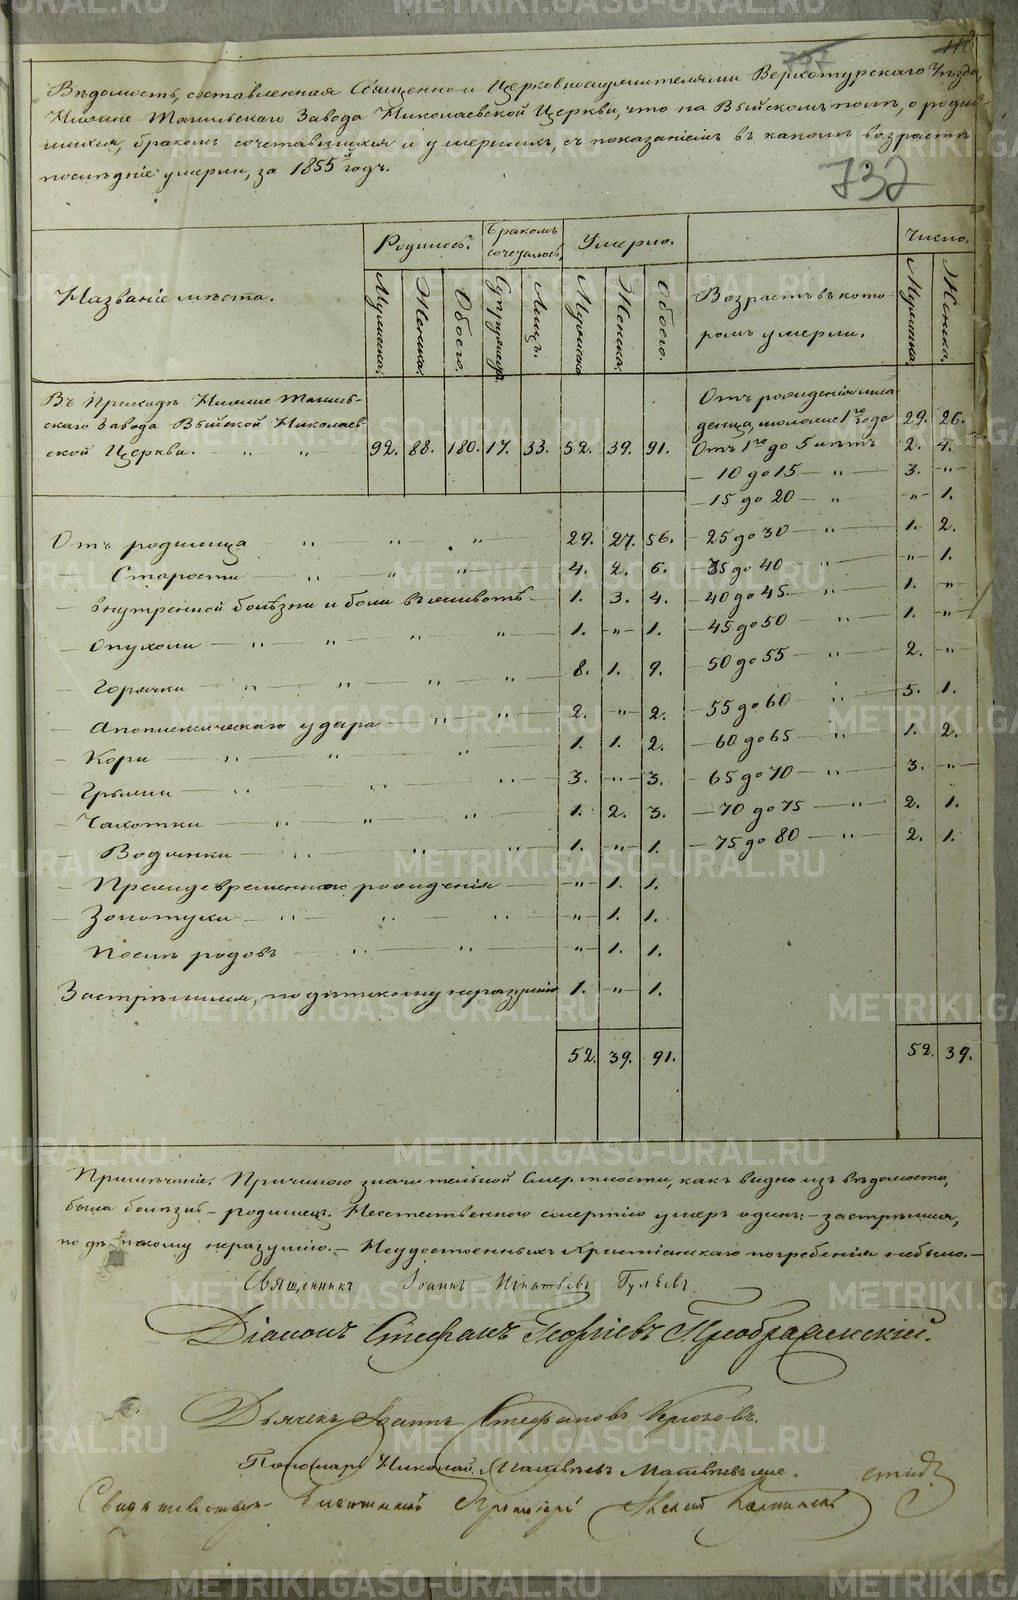 118
737
Вѣдомость, составленная Священно и Церковнослужителями Верхотурскаго Уѣзда,
Нижне Тагильскаго Завода Николаевской Церкви, что на Выйскомъ полѣ, о родив-
шихся, бракомъ сочетавшихся и умершихъ, съ показаніемъ въ какомъ возрастѣ
послѣдніе умерли, за 1855й годъ.
732
Названіе мѣста. Родилось. Бракомъ сочеталось Умерло. Возрастъ въ кото-
ромъ умерли. Число.
Мужеска. Женска. Обоего. Супружествъ Лицъ. Мужеска Женска. Обоего. Мужеска. Женска.
Въ Приходѣ Нижне Тагиль-
скаго Завода Выйской Николаев-
ской Церкви. " " 92. 88. 180. 17. 33. 52. 39. 91.
Отъ рожденія мла-
денца, моложе 1го года 29. 26.
Отъ 1го до 5 лѣтъ 2. 4.
— 10 до 15 — " — 3. — " —
— 15 до 20 — " — " — 1.
— 25 до 30 — " — 1. 2.
— 35 до 40 — " — " — 1.
— 40 до 45 — " — 1. "
— 45 до 50 — " — 1. — " —
— 50 до 55 — " — 2. — " —
— 55 до 60 — " — 5. 1.
— 60 до 65 — " — 1. 2.
— 65 до 70 — " — 3. — " —
— 70 до 75 — " — 2. 1.
— 75 до 80 — " — 2. 1.
Отъ родимца " " " 29. 27. 56.
— Старости — " " " 4. 2. 6.
— внутренной болѣзни и боли въ животѣ — 1. 3. 4.
— Опухоли — " " " " 1. — " — 1.
— Горячки — " " " " 8. 1. 9.
— Апоплексическаго удара — " " 2. — " — 2.
— Кори — " " " 1. 1. 2.
— Грыжи — " " " 3. — " — 3.
— Чахотки " " " 1. 2. 3.
— Водянки — " " " 1. — " — 1.
— Преждевременнаго рожденія — — " — 1. 1.
— Золотухи — " " " — " — 1. 1.
— Послѣ родовъ — " " — " — 1. 1.
Застрѣлился, по дѣтскому неразумію 1. — " — 1.
52. 39. 91. 52. 39.
Примѣчаніе. Причиною значительной смертности, какъ видно изъ вѣдомости,
была болѣзнь — родимецъ. Неестественною смертію умеръ одинъ: — застрѣлился,
по дѣтскому неразумію. — Неудостоенныхъ Христіанскаго погребенія небыло. —
Священникъ Іоаннъ Игнатьевъ Гуляевъ
Діаконъ Стефанъ Георгіевъ Преображенскій.
Дьячекъ Іоаннъ Стефановъ Крюковъ.
Пономарь Николай Матвѣевъ
METRIKI.GASO-URAL.RU